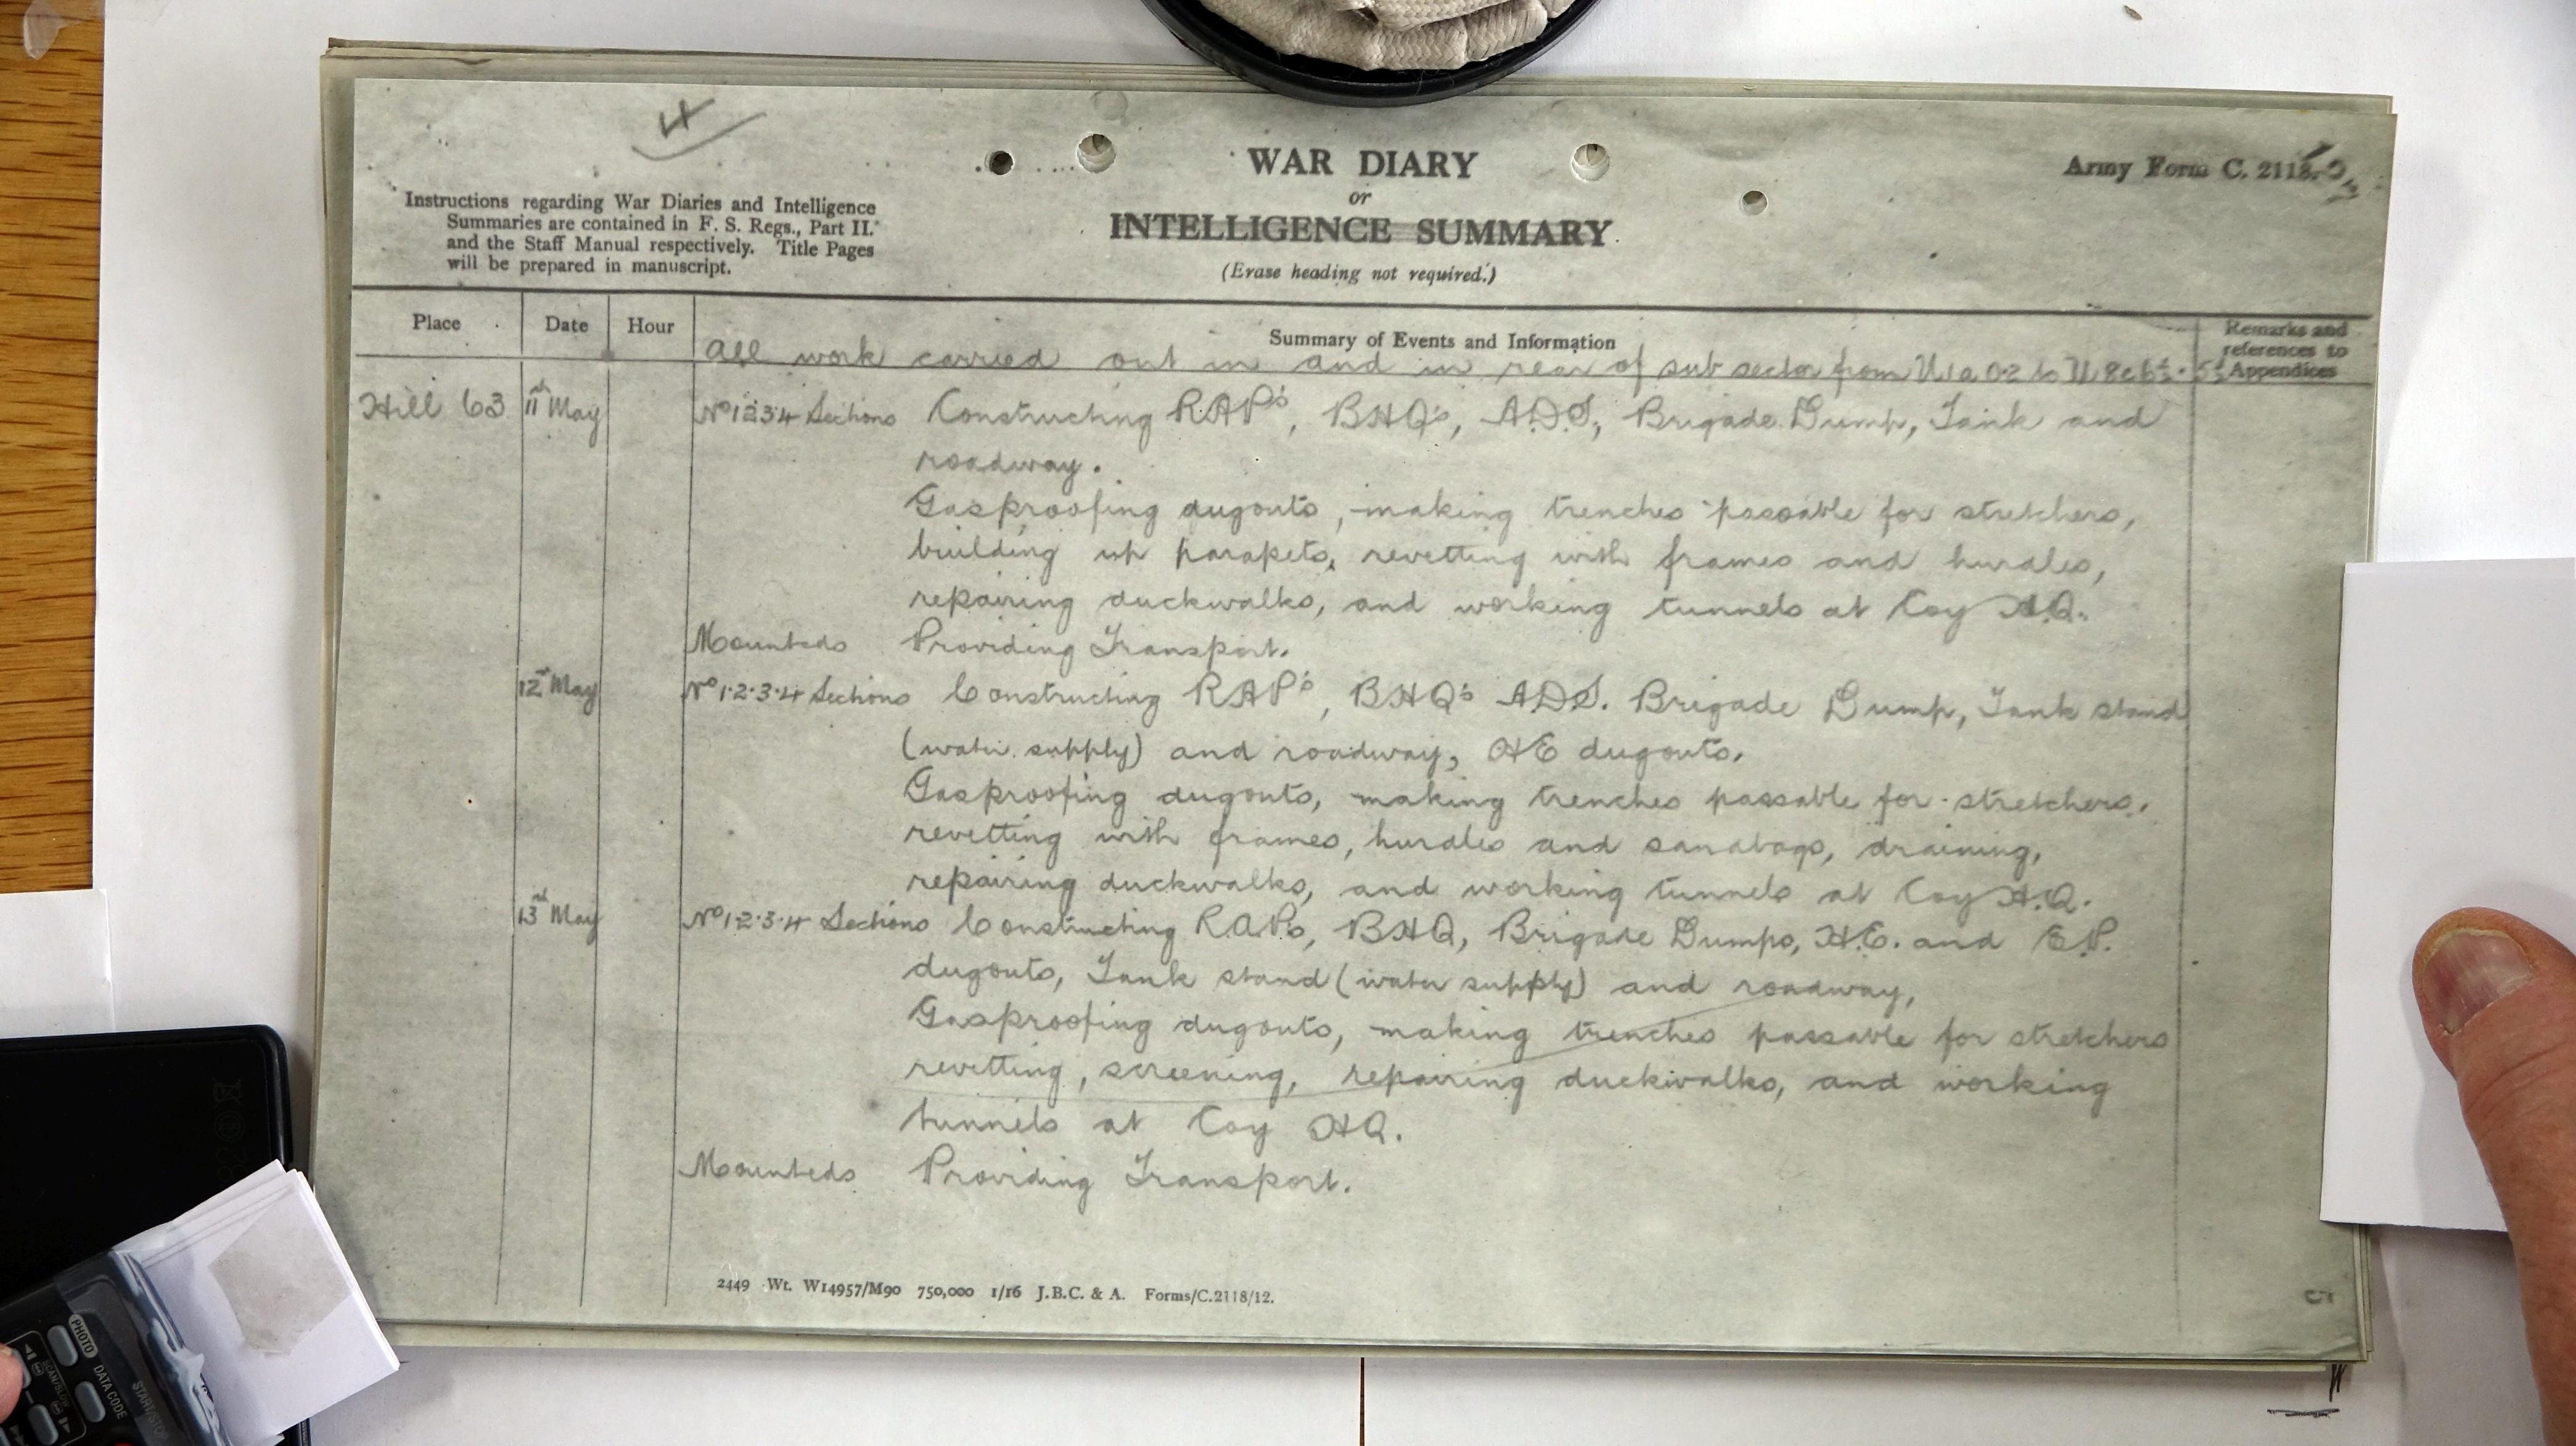 4
WAR DIARY
or
INTELLIGENCE SUMMARY.
(Erase heading not required.)
Army Form C. 2118.
Instructions regarding War Diaries and Intelligence
Summaries are contained in F. S. Regs., Part II.
and the Staff Manual respectively. Title Pages
will be prepared in manuscript.
Place Date Hour Summary of Events and Information Remarks and
references to
Appendices
All work carried out in and in rear of sub sector from U1a 0.2 to
Hill 63 11th May Nº 1234 Sections Constructing RAP's, BHQ's, ADS, Brigade Dump, Tank and
roadway.
Gasproofing dugouts, making trenches passable for stretchers,
building up parapets, revetting with frames and hurdles,
repairing duckwalks, and working tunnels at Coy H.Q.
Mounteds Providing Transport.
12th May Nº 1.2.3.4 Sections Constructing RAP's, BHQ's ADS. Brigade Dump, Tank stand
(water supply) and roadway, HE dugouts.
Gasproofing dugouts, making trenches passable for stretchers,
revetting with frames, hurdles and sandbags, draining,
repairing duckwalks, and working tunnels at Coy H.Q.
13th May Nº 1.2.3.4 Sections Constructing R.A.Ps, BHQ, Brigade Dumps, H.E. and E.P.
dugouts, Tank stand (water supply) and roadway,
Gasproofing dugouts, making trenches passable for stretchers
revetting, screening, repairing duckwalks, and working
tunnels at Coy HQ.
Mounteds Providing Transport.
2449 Wt. W14957/M90 750,000 1/16 J.B.C. & A. Forms/C.2118/12.
PHOTO
DATA CODE
START/STOP
SCAN/SLOW